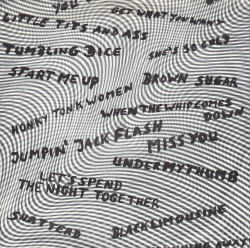 YOU
GET WHAT YOU WANT
LITTLE TITS AND ASS
TUMBLING DICE
SHE'S SO COLD
START ME UP
BROWN SUGAR
HONKY TONK WOMEN
WHEN THE WHIP COMES
DOWN
JUMPIN' JACK FLASH
MISS YOU
UNDER MY THUMB
LET'S SPEND
THE NIGHT TOGETHER
SHATTERD
BLACK LIMOUSINE